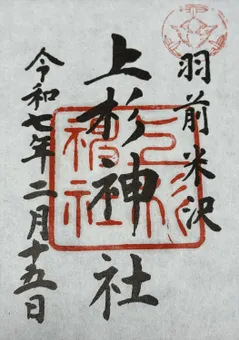 羽前米沢
上杉神社
上杉神社
令和七年二月十五日